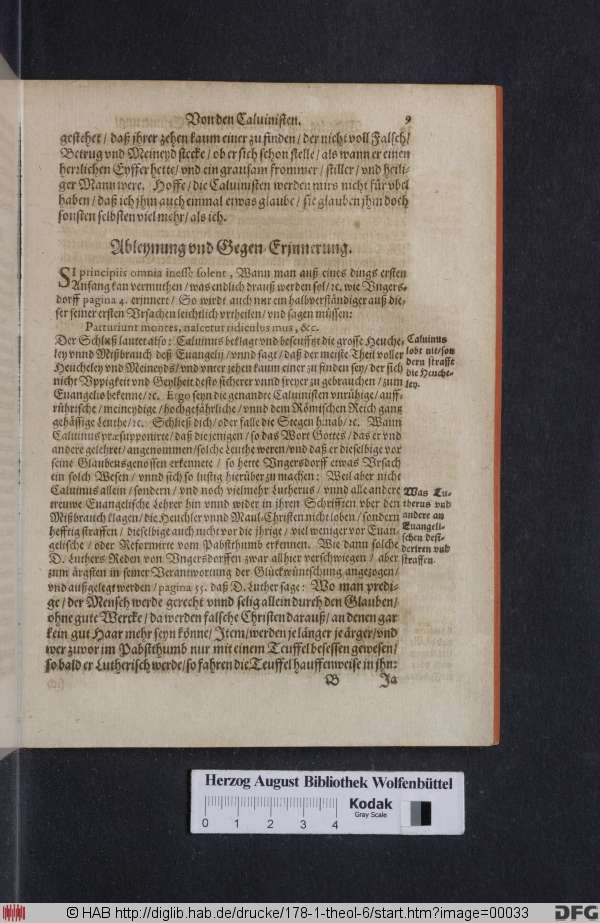 Von den Caluinisten. 9
gestehet / daß jhrer zehen kaum einer zu finden / der nicht voll Falsch /
Betrug vnd Meineyd stecke / ob er sich schon stelle / als wann er einen
hertzlichen Eyffer hette / vnd ein grausam frommer / stiller / vnd heili-
ger Mann were. Hoffe / die Caluinisten werden mirs nicht für vbel
haben / daß ich jhm auch einmal etwas glaube / sie glauben jhm doch
sonsten selbsten viel mehr / als ich.
Ableynung vnd Gegen-Erjnnerung.
SI principiis omnia inesse solent, Wann man auß eines dings ersten
Anfang kan vermuthen / was endlich drauß werden sol / ꝛc. wie Vngers-
dorff pagina 4. erjnnert / So wirdt auch nur ein halbverständiger auß die-
ser seiner ersten Vrsachen leichtlich vrtheilen / vnd sagen müssen:
Parturiunt montes, nascetur ridiculus mus, &c.
Der Schluß lautet also: Caluinus beklagt vnd beseufftzt die grosse Heuche-
ley vnnd Mißbrauch deß Euangelij / vnnd sagt / daß der meiste Theil voller
Heucheley vnd Meineyds / vnd vnter zehen kaum einer zu finden sey / der sich
nicht Vppigkeit vnd Geylheit desto sicherer vnnd freyer zu gebrauchen / zum
Euangelio bekenne / ꝛc. Ergo seyn die genandte Caluinisten vnrühige / auff-
rührische / meineydige / hochgefährliche / vnnd dem Römischen Reich gantz
gehässige Leuthe / ꝛc. Schließ dich / oder falle die Stegen hinab / ꝛc. Wann
Caluinus præsupponirte / daß diejenigen / so das Wort Gottes / das er vnd
andere gelehret / angenommen / solche Leuthe weren / vnd daß er dieselbige vor
seine Glaubensgenossen erkennete / so hette Vngersdorff etwas Vrsach
ein solch Wesen / vnnd sich so lustig hierüber zu machen: Weil aber nicht
Caluinus allein / sondern / vnd noch vielmehr Lutherus / vnnd alle andere
trewe Euangelische Lehrer hin vnnd wider in jhren Schrifften vber den
Mißbrauch klagen / die Heuchler vnnd Maul-Christen nicht loben / sondern
hefftig straffen / dieselbige auch nicht vor die jhrige / viel weniger vor Euan-
gelische / oder Reformirte vom Pabstthumb erkennen. Wie dann solche
D. Luthers Reden von Vngersdorffen zwar allhier verschwiegen / aber
zum ärgsten in seiner Verantwortung der Glückwüntschung angezogen /
vnd außgelegt werden / pagina 55. daß D. Luther sage: Wo man predi-
ge / der Mensch werde gerecht vnnd selig allein durch den Glauben /
ohne gute Wercke / da werden falsche Christen darauß / an denen gar
kein gut Haar mehr seyn könne / Item / werden je länger je ärger / vnd
wer zuvor im Pabstthumb nur mit einem Teuffel besessen gewesen /
so bald er Lutherisch werde / so fahren die Teuffel hauffenweise in jhn:
B Ja
Caluinus
lobt nit / son
dern straffe
die Heuche-
ley.
Was Lu-
therus vnd
andere an
Euangeli-
schen desi-
deriren vnd
straffen.
Herzog August Bibliothek Wolfenbüttel
Kodak
Gray Scale
0 1 2 3 4
© HAB http://diglib.hab.de/drucke/178-1-theol-6/start.htm?image=00033
DFG